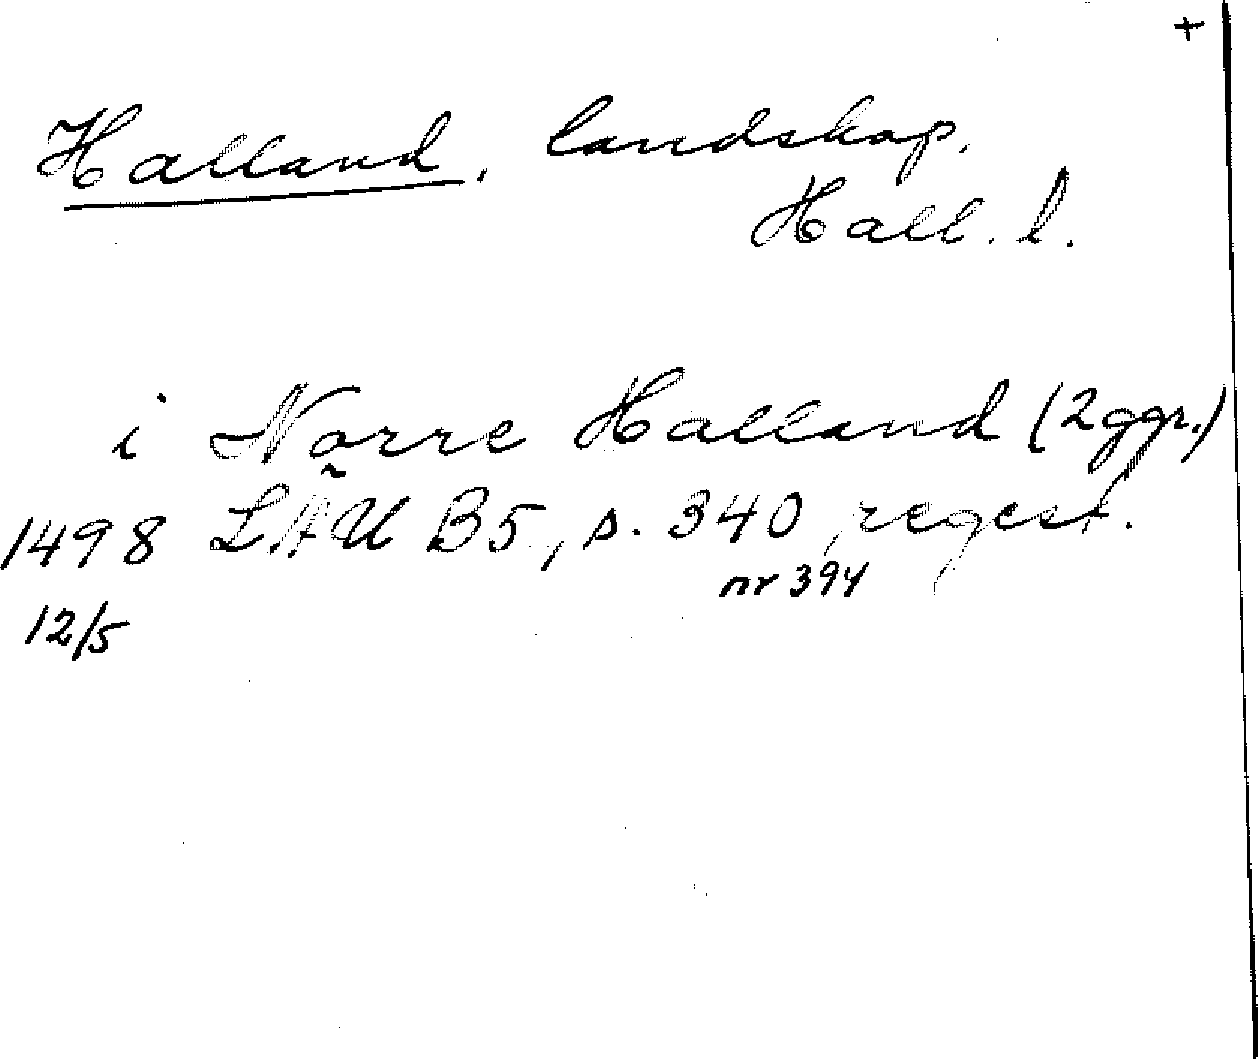 +
Halland, landskap.
Hall. l.
i Nörre Halland (2 ggr.)
1498 LÄU B5, s. 340 regest.
nr 394
12/5